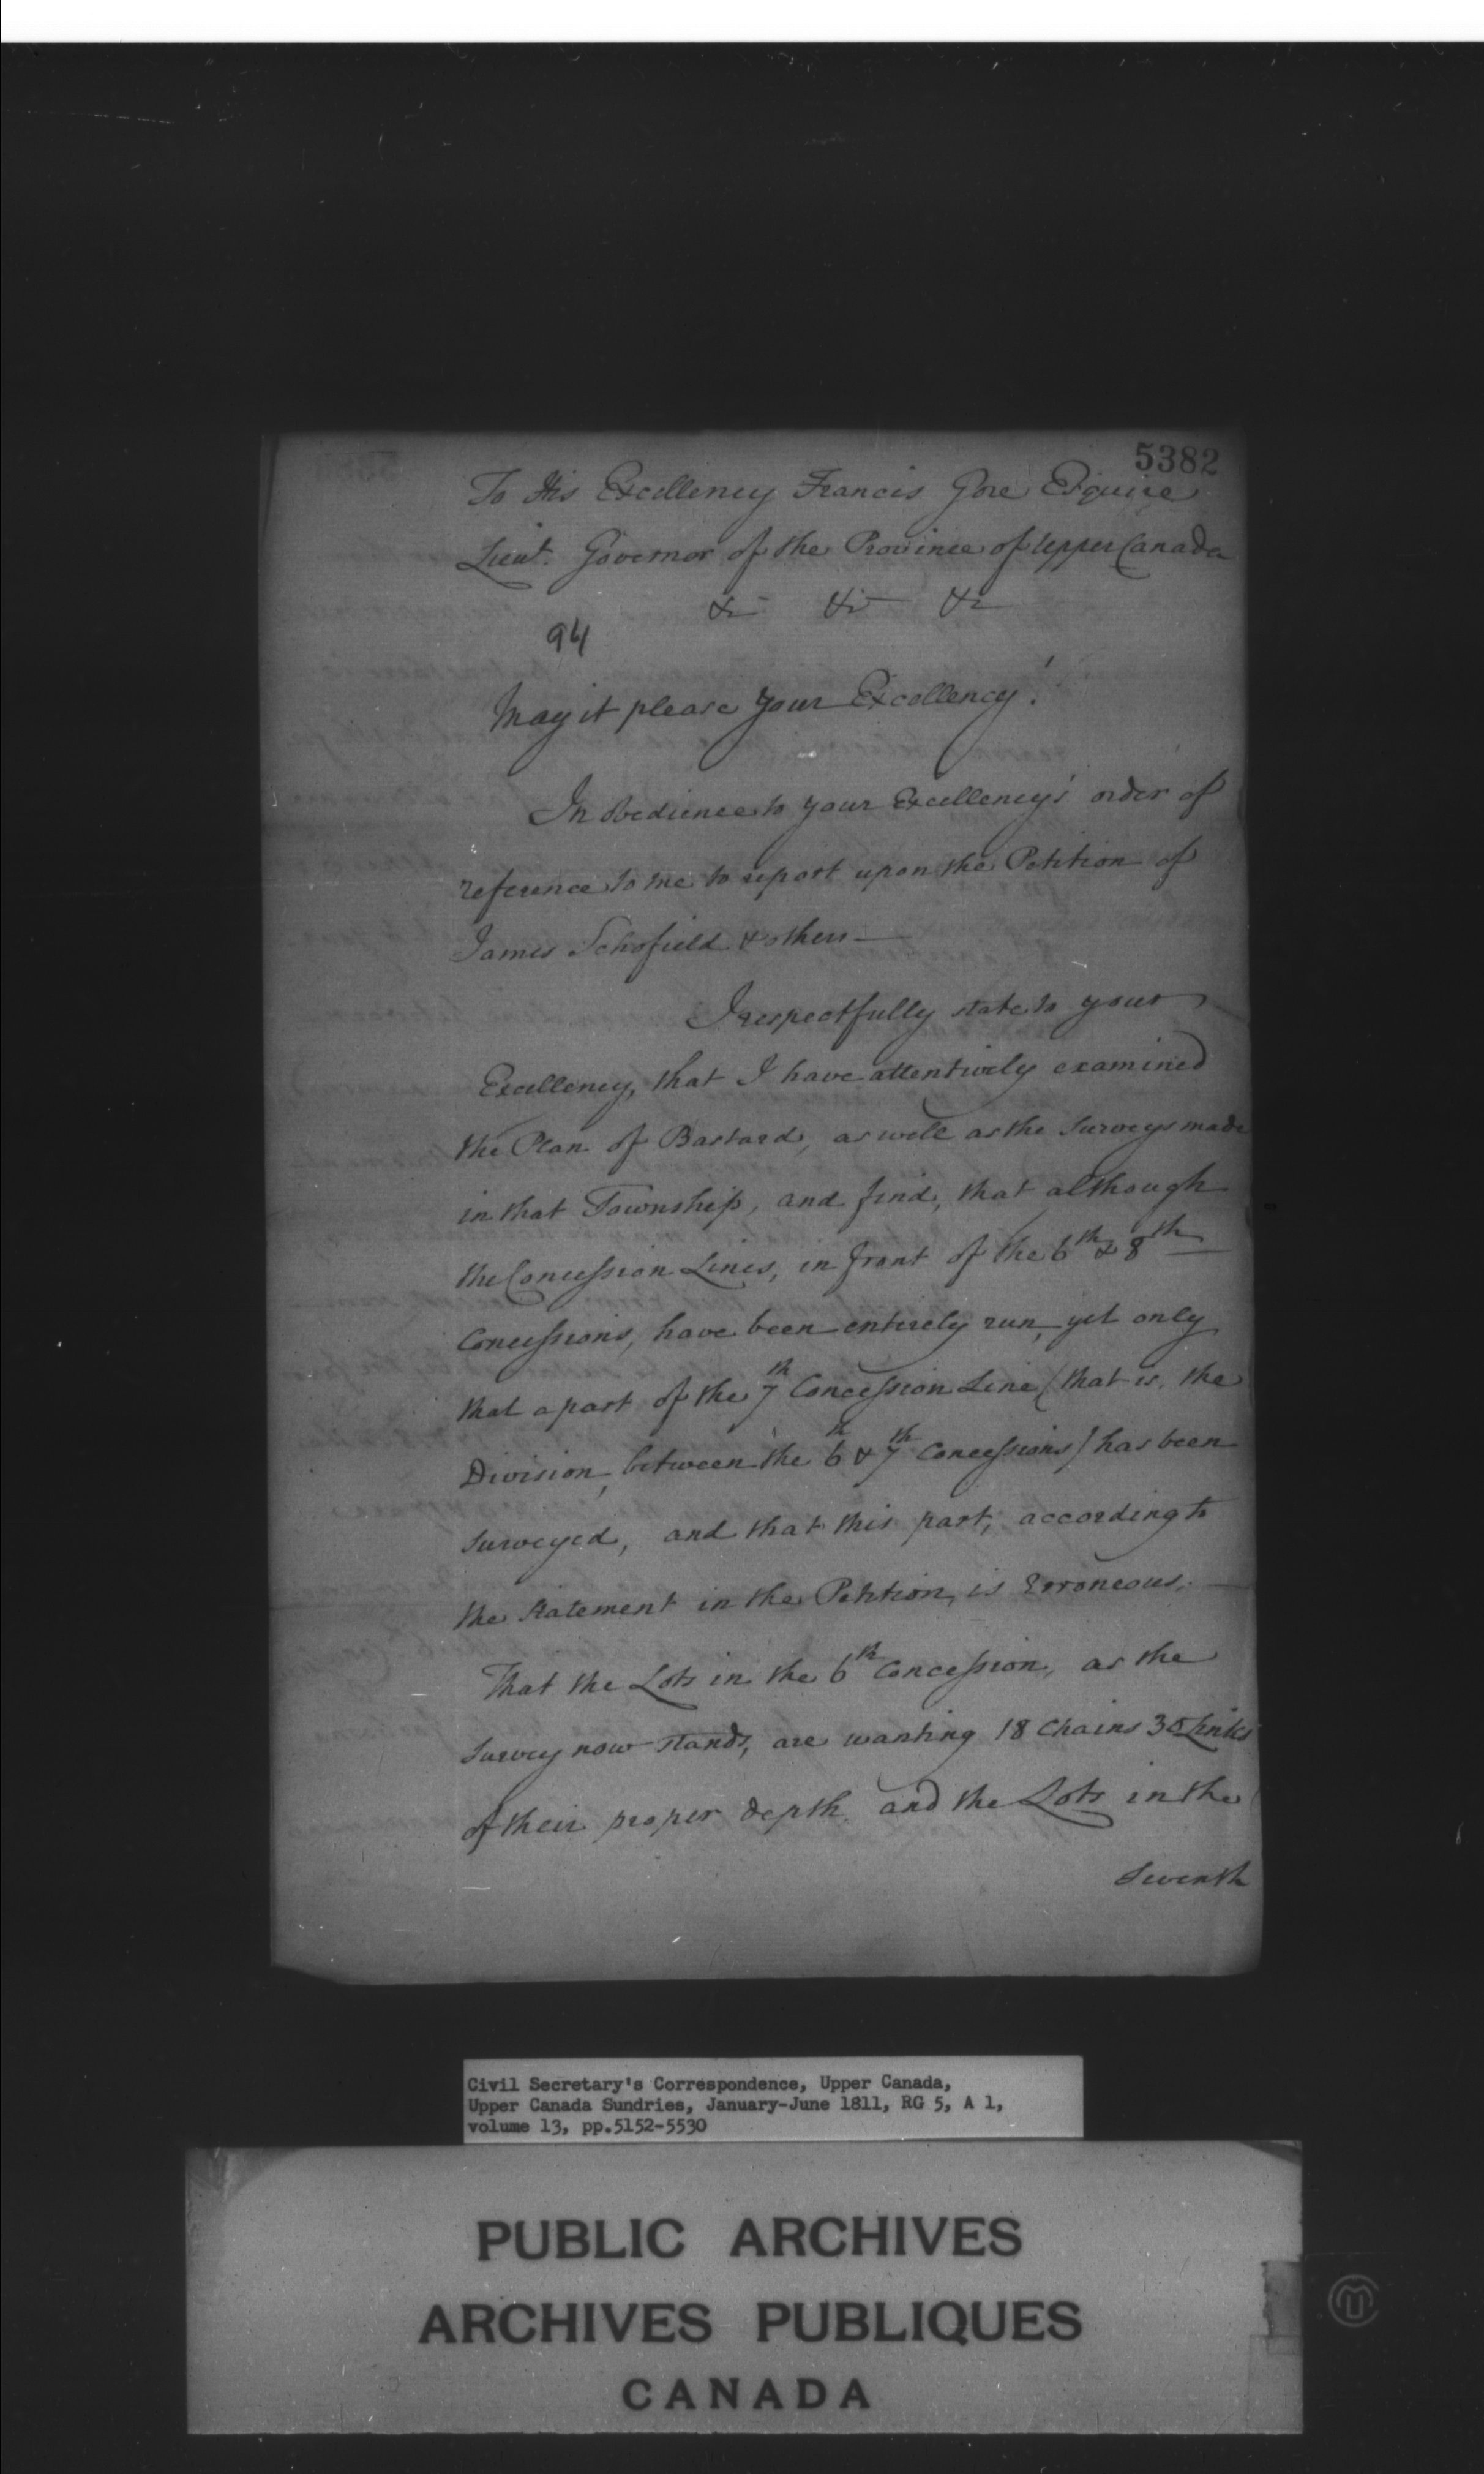 5382
To His Excellency Francis Gore Esquire
Lieut. Governor of the Province of Upper Canada
&c &c &c
94
May it please your Excellency!
In obedience to your Excellency's order of
reference to me to report upon the Petition of
James Schofield & others—
I respectfully state to your
Excellency, that I have attentively examined
the Plan of Bastard, as well as the Surveys made
in that Township, and find, that although
the Concession Lines, in front of the 6th & 8th
Concessions, have been entirely run, yet only
that a part of the 7th Concession Line (that is, the
Division, between the 6th & 7th Concessions) has been
surveyed, and that this part, according to
the Statement in the Petition, is Erroneous.—
That the Lots in the 6th Concession, as the
Survey now stands, are wanting 18 Chains 35 Links
of their proper depth, and the Lots in the
Seventh
Civil Secretary's Correspondence, Upper Canada,
Upper Canada Sundries, January-June 1811, RG 5, A 1,
volume 13, pp.5152-5530
PUBLIC ARCHIVES
ARCHIVES PUBLIQUES
CANADA